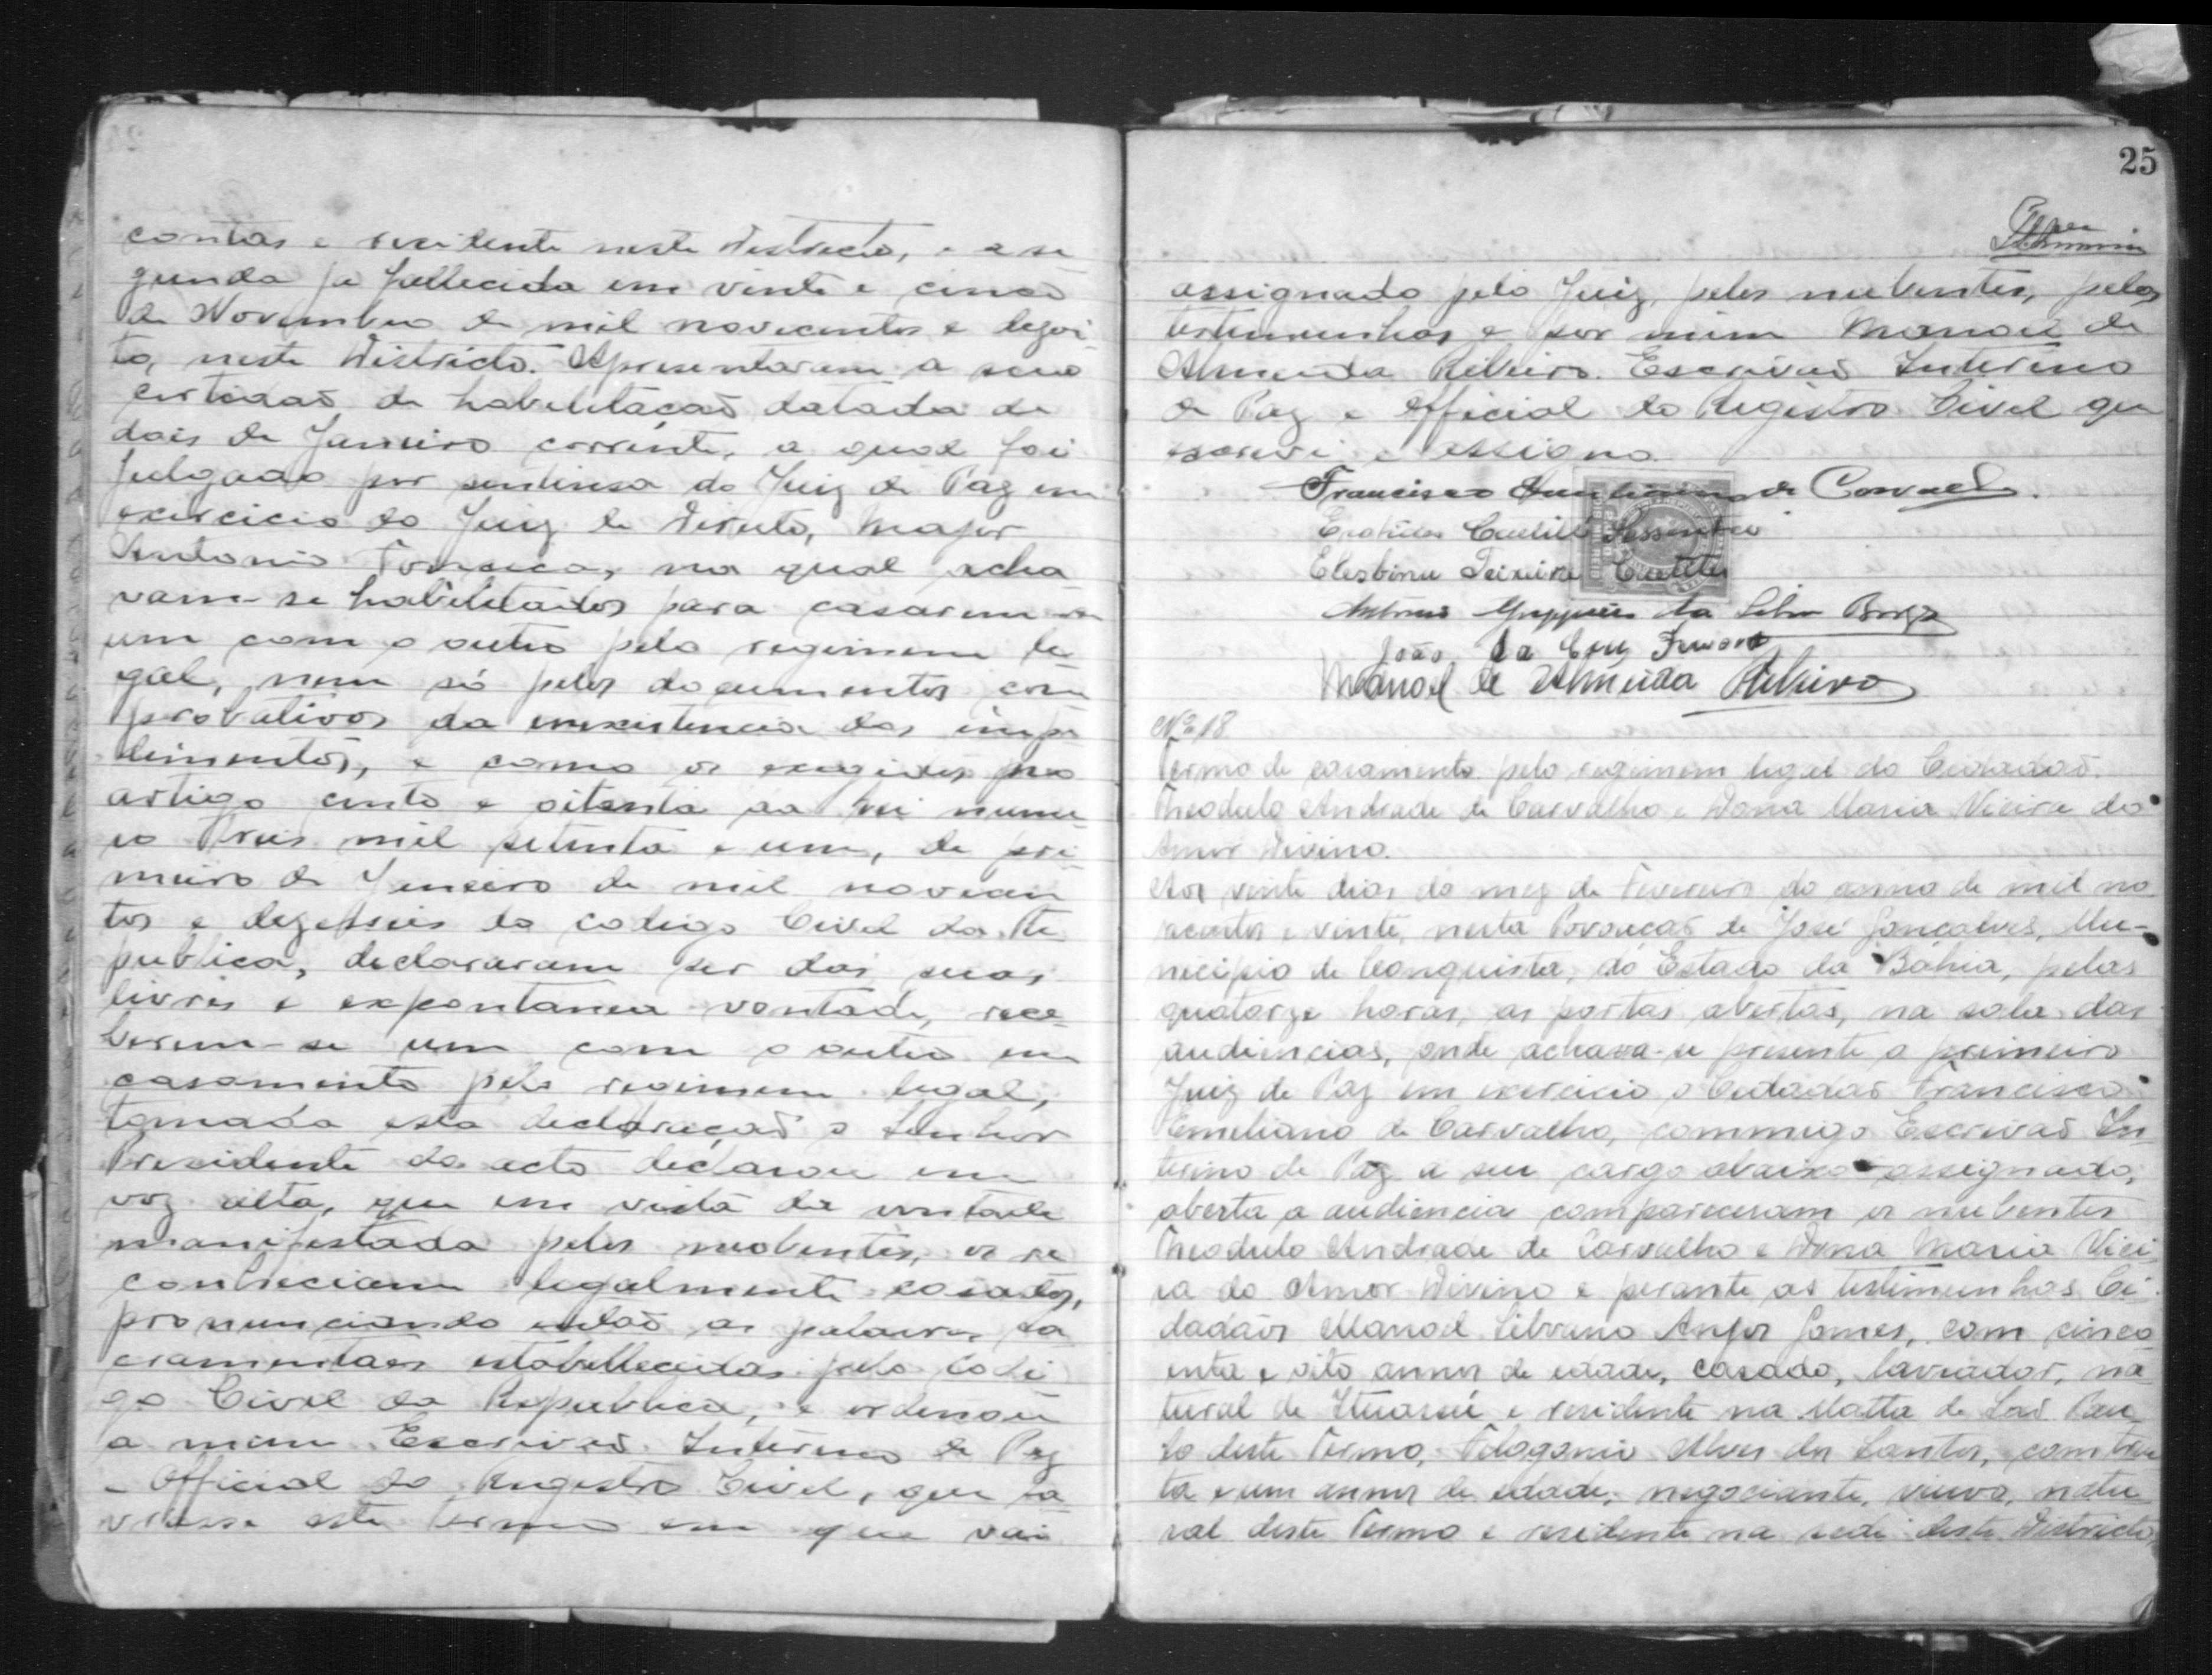 contas e residente neste Districto, e a se
gunda ja fallecida em vinte e cinco
de Novembro de mil novecentos e dezoi
to, neste Districto. Apresentaram a sua
certidaõ de habilitaçaõ datada de
dois de Janeiro corrente, a qual foi
julgado por sentensa do Juiz de Paz em
exercicio do Juiz de Direito, Major
Antonio Fonseca, na qual acha
vam-se habilitados para casarem-se
um com o outro pelo regimem le
gal, nem só pelos documentos com
probativos da inexistencia dos impe
dimentos, e como os exegidos no
artigo cento e oitenta da lei nume
ro tres mil setenta e um, de pri
meiro de Janeiro de mil novecen
tos e dezesseis do codigo Civel da Re
publica, declararam ser das suas
livres e expontanea vontade, rece
berem-se um com o outro em
casamento pelo regimem legal,
tomada esta declaraçaõ o Senhor
Presidente do acto declarou em
voz alta, que em vista da vontade
manifestada pelos nubentes, os re
conheciam legalmente casados,
pronunciando entaõ as palavras sa
cramentaes estabellecidas pelo Codi
go Civel da Republica, e ordenou
a mim Escrivaõ Interino de Paz
e Official do Registro Civel, que la
vrasse este termo em que vai
25
assignado pelo Juiz, pelos nubentes, pelas
testemunhas e por mim Manoel de
Almeida Ribeiro. Escrivaõ Interino
de Paz e Official do Registro Civel que
escrevi e assigno.
Francisco de Carvalho.
Elesbina Teixeira
Antonio da Silva Borges
João da Cruz
Manoel de Almeida Ribeiro
Nº 18
Termo de casamento pelo regimem legal do Cidadaõ
Theodulo Andrade de Carvalho e Dona Maria Vieira do
Amor Divino.
Aos vinte dias do mez de Fevereiro do anno de mil no
vecentos e vinte, nesta Povoaçaõ de José Gonçalves, Mu-
nicipio de Conquista, do Estado da Bahia, pelas
quatorze horas, as portas abertas, na sala das
audiencias, onde achava-se presente o primeiro
Juiz de Paz em exercicio o Cidadaõ Francisco
Emiliano de Carvalho, commigo Escrivaõ In
terino de Paz a seu cargo abaixo assignado,
aberta a audiencia compareceram os nubentes
Theodulo Andrade de Carvalho e Dona Maria Viei
ra do Amor Divino e perante as testimunhas Ci
dadaõs Manoel Anjos Gomes, com cinco
enta e oito annos de edade, casado, lavrador, na
tural de Ituassú e residente na Matta de Saõ Pau
lo deste Termo, Alves dos Santos, com trin
ta e um annos de edade, negociante, viuvo, natu
ral deste Termo e residente na sede deste Districto,